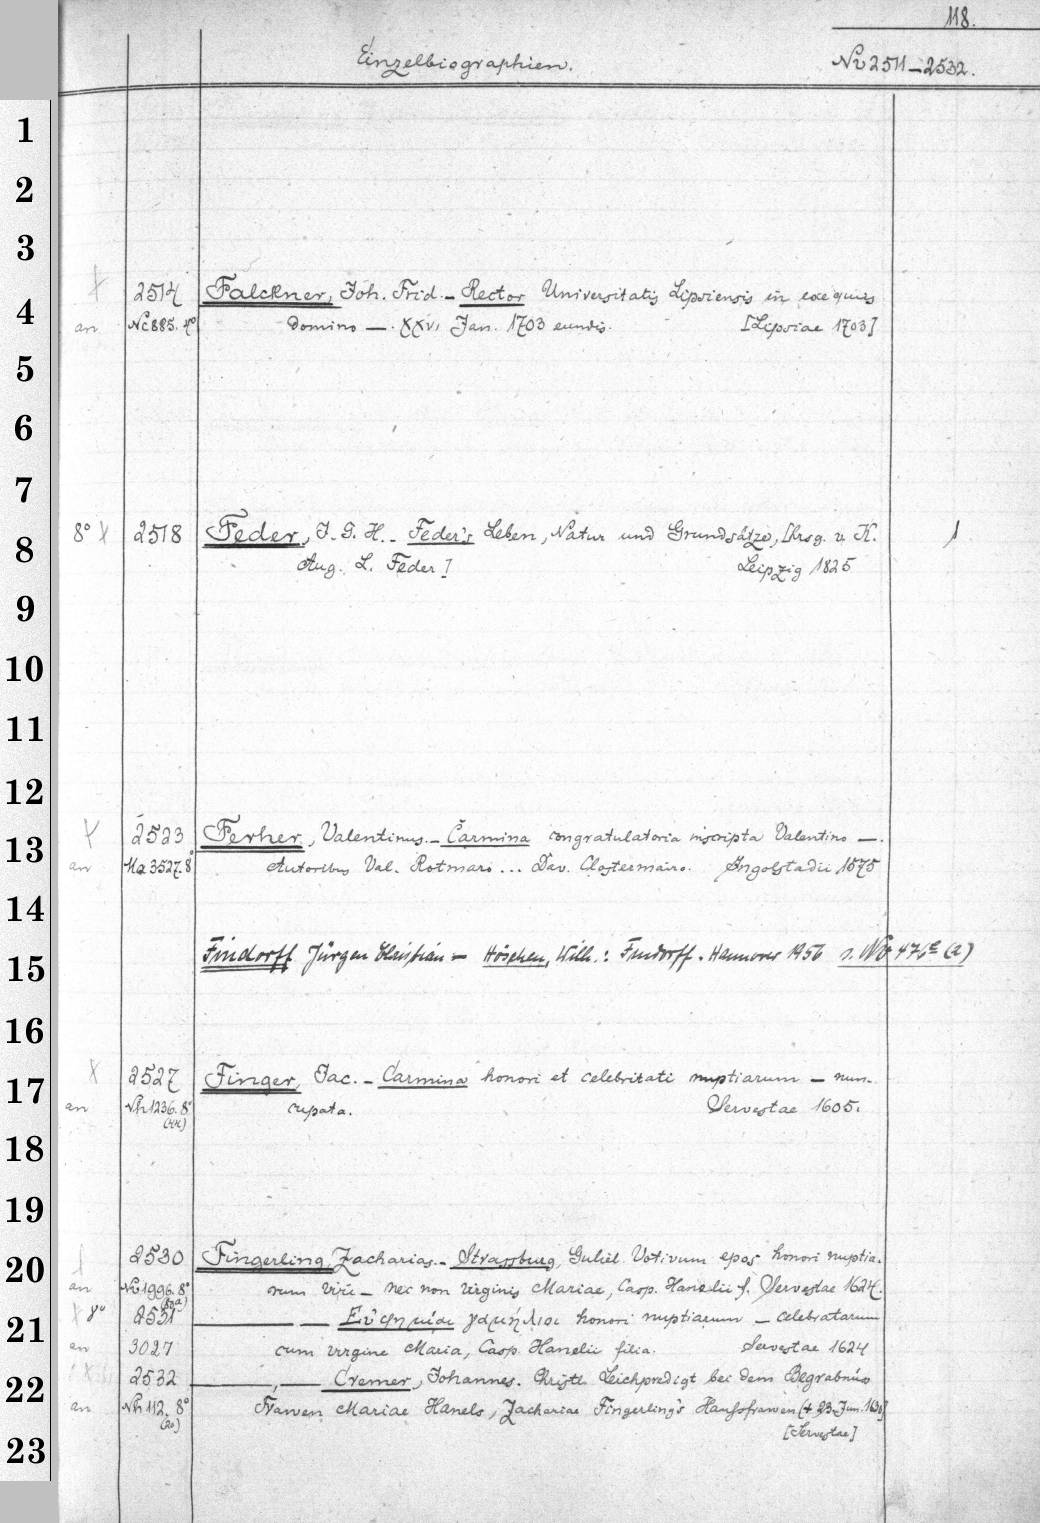 118.
Einzelbiographien. No 2511–2532.
1
2
3
2514 Falckner, Joh. Frid. – Rector Universitatis Lipsiensis in exequiis
4
an Nc 885. 4° domino — . XXVI Jan. 1703 eundis. [Lipsiae 1703]
5
6
7
8° 2518 Feder, J. G. H. – Feder's Leben, Natur und Grundsätze, [hrsg. v. K. 1
8
Aug. L. Feder] Leipzig 1825
9
10
11
12
2523 Ferher, Valentinus. – Carmina congratulatoria inscripta Valentino —.
13
an Ma 3527. 8° Autoribus Val. Rotmaro ... Dav. Clostermairo. Ingolstadii 1575
14
Findorff Jürgen Christian – Höschen, Wilh.: Findorff. Hannover 1956 s. No 476e (a)
15
16
2527 Finger, Jac. – Carmina honori et celebritati nuptiarum – nun-
17
an Nh 1236. 8° cupata. Servestae 1605.
18
19
2530 Fingerling, Zacharias. – Strassburg, Guliel. Votivum epos honori nuptia-
20
an 1996. 8° rum viri – nec non virginis Mariae, Casp. Hanelii f. Servestae 1624.
8° 2531 — — Εὐφημίαι γαμήλιοι honori nuptiarum – celebratarum
21
an 3027 cum virgine Maria, Casp. Hanelii filia. Servestae 1624
2532 —, — Cremer, Johannes. Christl. Leichpredigt bei dem Begräbnüs
22
an Nh 112. 8° Frawen Mariae Hanels, Zachariae Fingerling's Haussfrawen († 23. Jun. 1631]
(20) [Servestae]
23